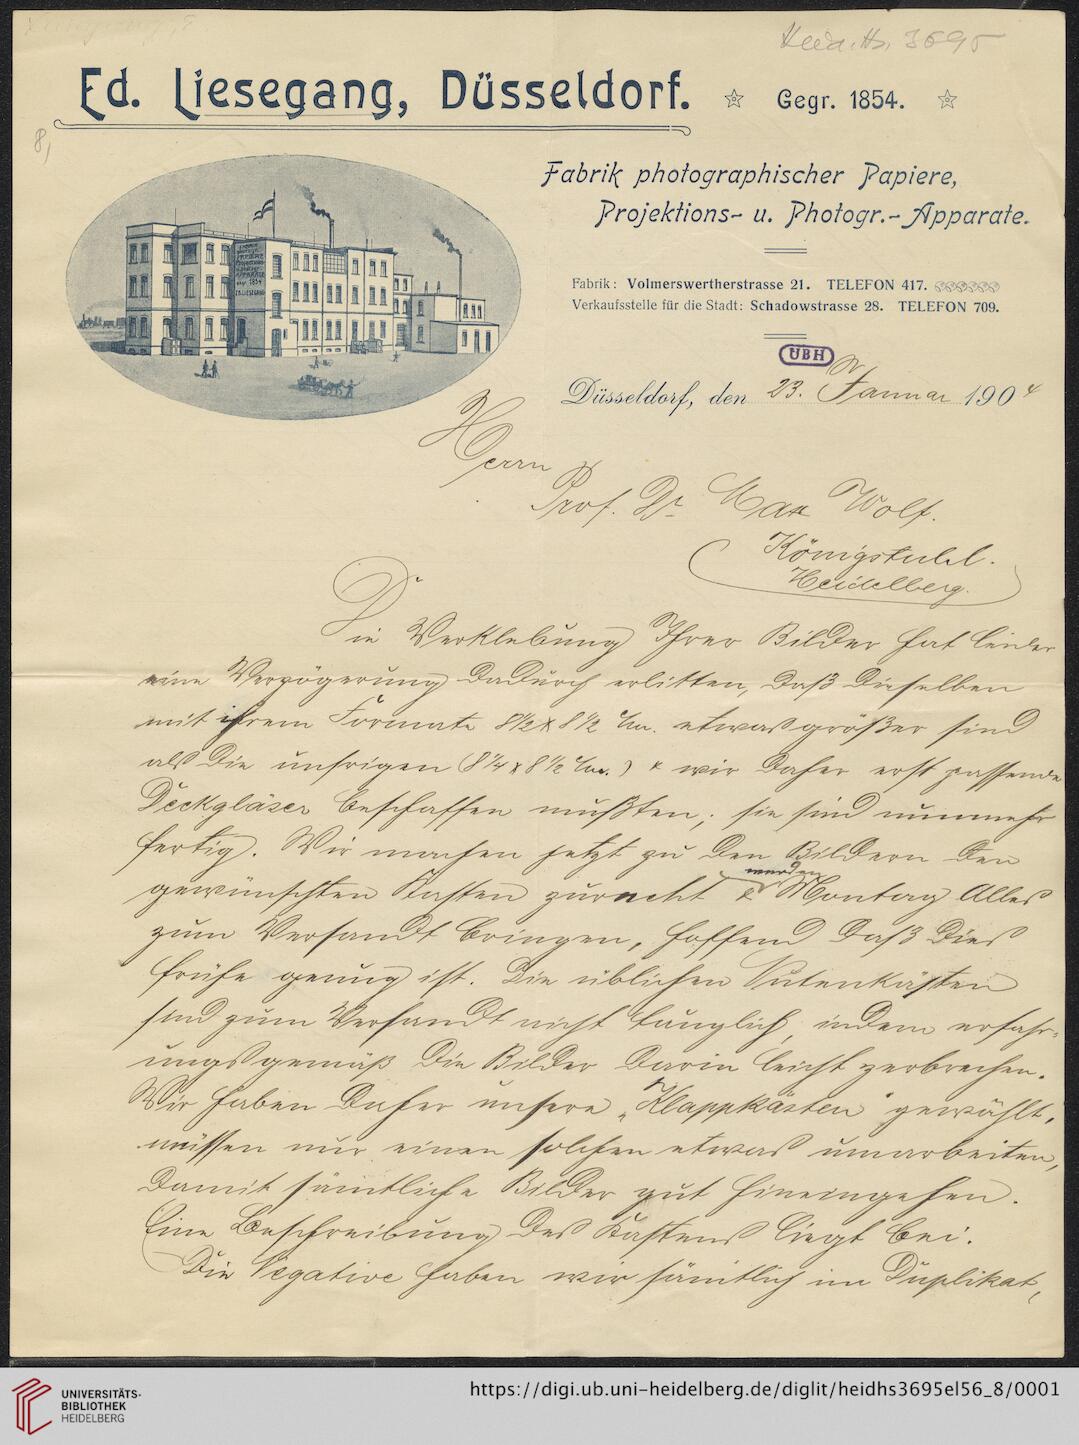 Heid. Hs. 3695
8,
Ed. Liesegang, Düsseldorf. Gegr. 1854.
Fabrik photographischer Papiere,
Projektions- u. Photogr.-Apparate.
Fabrik: Volmerswertherstrasse 21. TELEFON 417.
Verkaufsstelle für die Stadt: Schadowstrasse 28. TELEFON 709.
UBH
Düsseldorf, den 23. Januar 1904
Herrn
Prof. Dr. Max Wolf.
Königstuhl.
Heidelberg.
Die Verklebung Ihrer Bilder hat leider
eine Verzögerung dadurch erlitten, daß dieselben
mit ihrem Formate 8½ x 8½ c/m. etwas größer sind
als die unsrigen (8¼ x 8½ c/m.) & wir daher erst passende
Deckgläser beschaffen mußten; sie sind nunmehr
fertig. Wir machen jetzt zu den Bildern den
gewünschten Kasten zurecht & werden Montag Alles
zum Versandt bringen, hoffend daß dies
frühe genug ist. Die üblichen Nutenkästen
sind zum Versandt nicht tauglich, indem erfahr-
ungsgemäß die Bilder darin leicht zerbrechen.
Wir haben daher unsere „Klappkästen" gewählt,
müssen nur einen solchen etwas umarbeiten,
damit sämtliche Bilder gut hineingehen.
Eine Beschreibung des Kastens liegt bei.
Die Negative haben wir sämtlich im Duplikat,
UNIVERSITÄTS-
BIBLIOTHEK
HEIDELBERG
https://digi.ub.uni-heidelberg.de/diglit/heidhs3695el56_8/0001